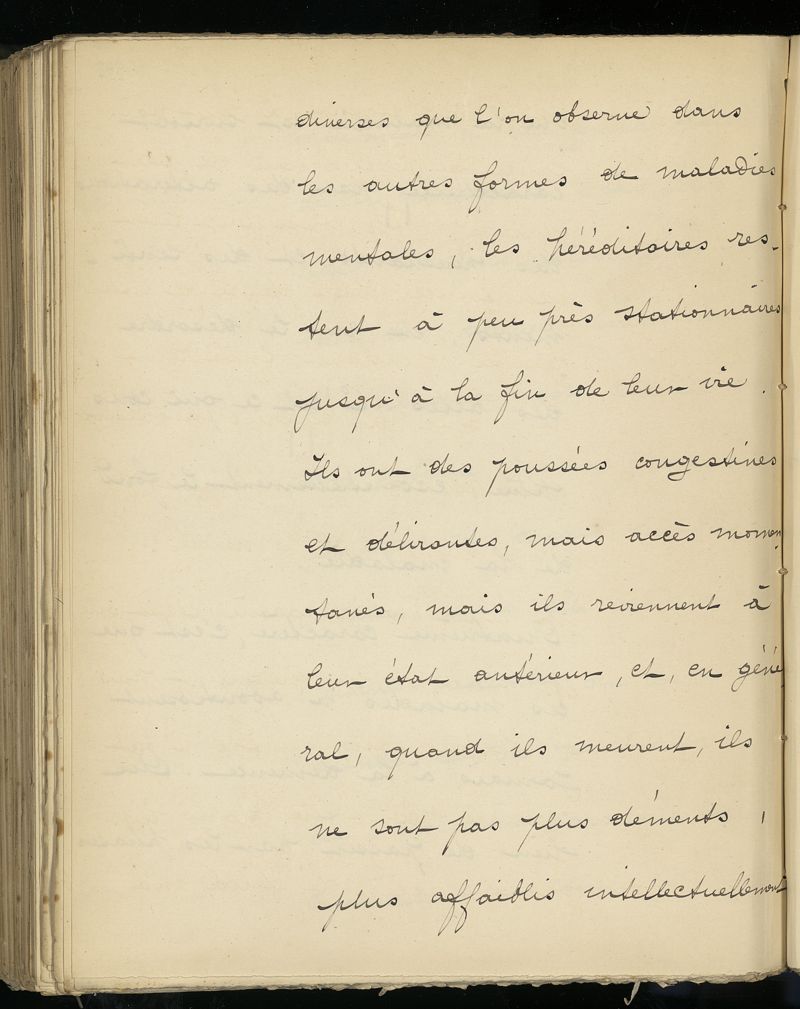 diverses que l'on observe dans
les autres formes de maladies
mentales, les héréditaires res-
tent à peu près stationnaires
jusqu'à la fin de leur vie.
Ils ont des poussées congestives
et délirantes, mais accès momen-
tanés, mais ils reviennent à
leur état antérieur, et, en géné
ral, quand ils meurent, ils
ne sont pas plus déments,
plus affaiblis intellectuellement